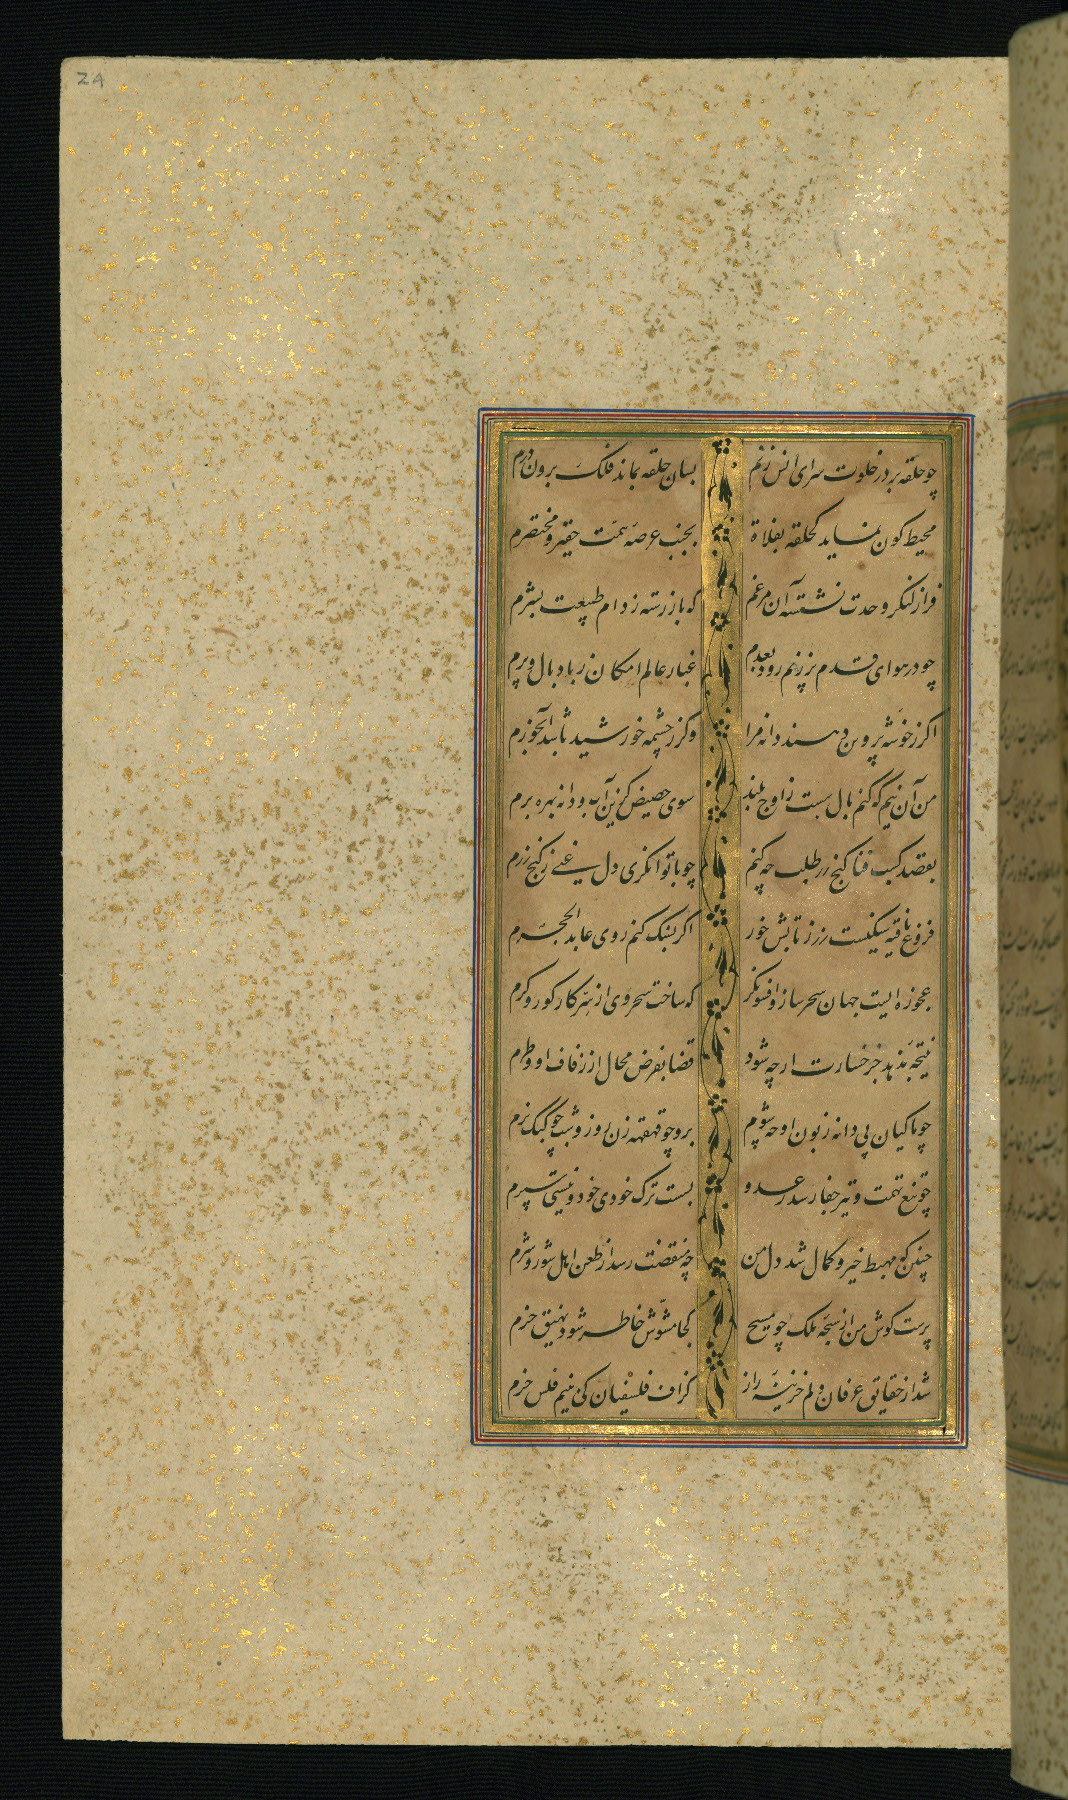 24
چو حلقه بر در خلوت سرای انس زنم بسان حلقه بماند فلک برون درم
محیط کون نماید کحلقه بفلاة بجنب عرصه همت حقیر و مختصرم
فراز کنکر وحدت نشسته آن مرغم که باز رسته ز دام طبیعت بشرم
چو در هوای قدم پر زنم رود بعدم غبار عالم امکان ز باد بال و پرم
اکر ز خوشه پروین دهند دانه مرا وکر ز چشمه خورشید باشد آبخورم
من آن نیم که کنم بال سست ز اوج بلند سوی حضیض کزین آب و دانه بهره برم
بقصد کسب فنا کنج زر طلب چه کنم چو با توانکری دل غنی ز کنج زرم
فروغ ناقیه سنکیست رزز تابش خور اکر بسنک کنم روی عابد الحجرم
عجوزه ایست جهان سحرساز و افسونکر که ساخت سحر وی از سر کار کور و کرم
نتیجه ندهد جز خسارت ار چه شود قضا بفرض محال از زفاف او وطرم
چو ماکیان پی دانه زبون او چه شوم برو چو قهقهه زن روز و شب چو کبک نرم
چو تیغ تهمت و تیر جفا رسد ز عدو بست ترک خودی خود و نیستی سپرم
چنین که مهبط خیر و کمال شد دل من چه منقصت رسد از طعن اهل شور و شرم
پرست کوش من از سبحه ملک چو مسیح کجا مشوش خاطر شود نهیق خرم
شد از حقایق عرفان دلم خزینه راز کزاف فلسفیان کی بنیم فلس خرم